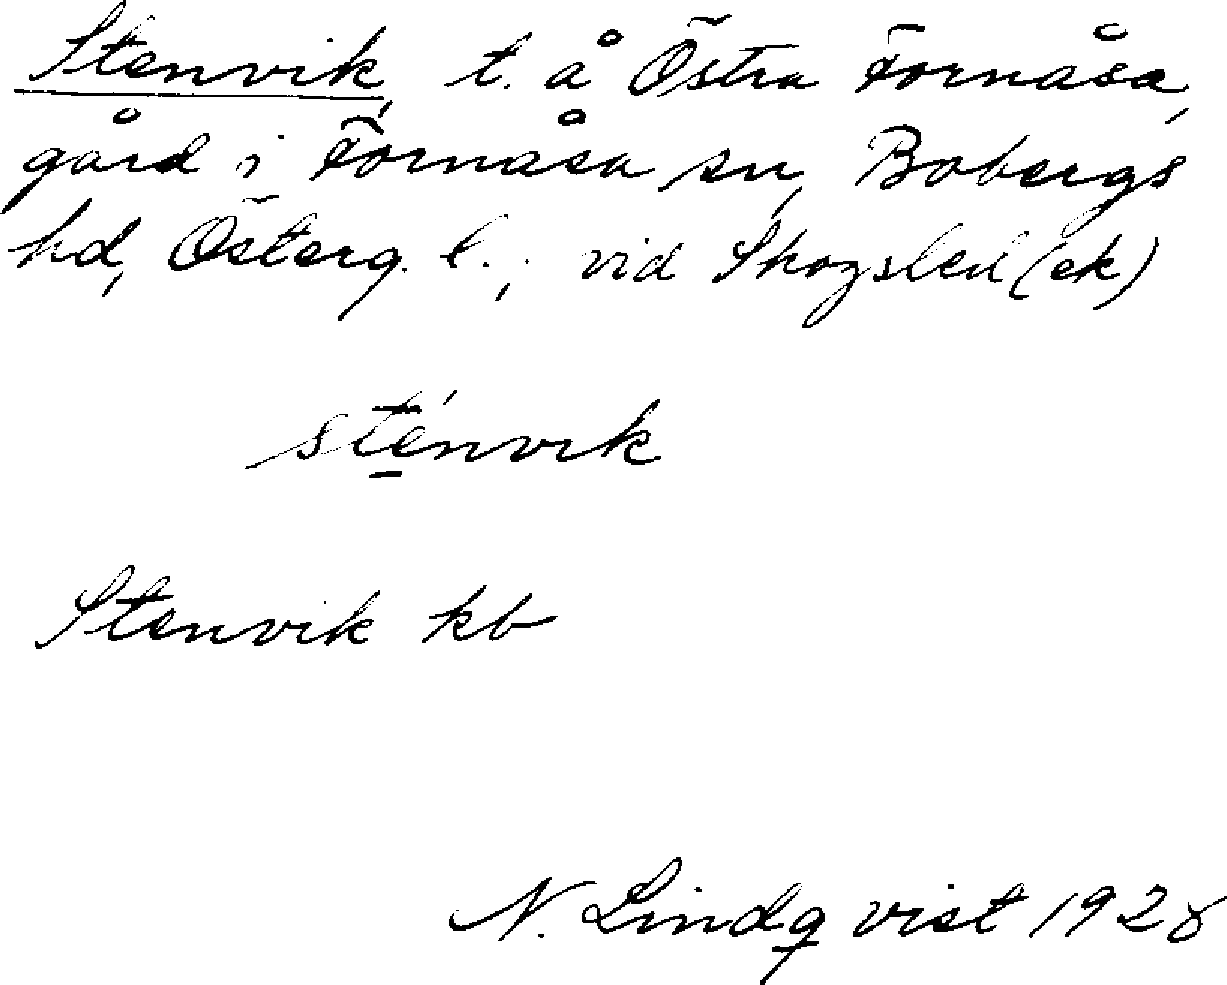 Stenvik, t. å Östra Fornåsa,
gård i Fornåsa sn, Bobergs
hd, Österg. l.; vid Skogsled (ek)
sténvik
Stenvik kb
N. Lindqvist 1928